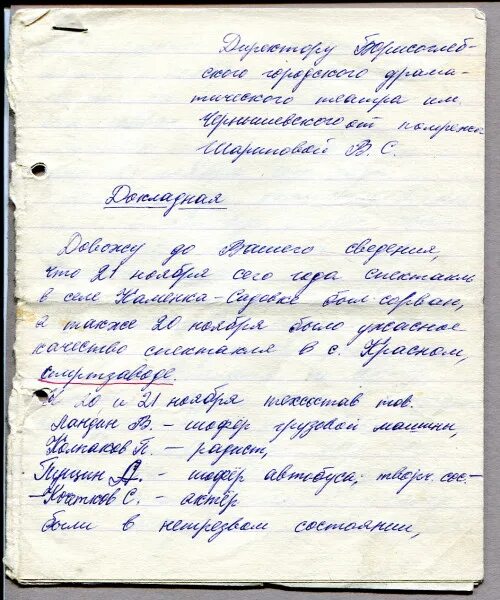 Директору Борисоглеб-
ского городского драма-
тического театра им.
Чернышевского от помрежа
Шариповой В. С.
Докладная
Довожу до Вашего сведения,
что 21 ноября сего года спектакль
в селе Каменка-Садовке был сорван,
а также 20 ноября было ужасное
качество спектакля в с. Красном,
спиртзаводе.
20 и 21 ноября техсостав тов.
Ландин В. - шофер грузовой машины,
Колпаков П. - радист,
Гущин Д. - шофёр автобуса, творч. сос-
С. - актёр
были в нетрезвом состоянии,